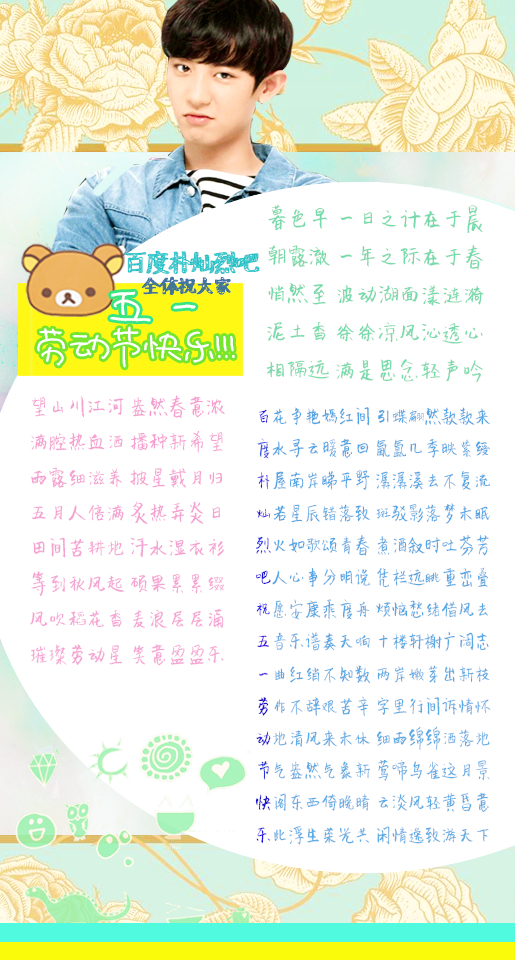 百度朴灿烈吧
全体祝大家
五 一
劳动节快乐!!!
暮色早 一日之计在于晨
朝露澈 一年之际在于春
悄然至 波动湖面漾涟漪
泥土香 徐徐凉风沁透心
相隔远 满是思念轻声吟
望山川江河 盎然春意浓
满腔热血洒 播种新希望
雨露细滋养 披星戴月归
五月人倍满 炙热弄炎日
田间苦耕地 汗水湿衣衫
等到秋风起 硕果累累缀
风吹稻花香 麦浪层层涌
璀璨劳动星 笑意盈盈乐
百花争艳嫣红间 引蝶翩然款款来
度水寻云暖意回 氤氲几季映紫绶
朴屋南岸睇平野 潺潺溪去不复流
灿若星辰错落致 斑驳影落梦未眠
烈火如歌颂青春 煮酒叙时吐芬芳
吧人心事分明说 凭栏远眺重峦叠
祝愿安康乘度舟 烦恼愁绪借风去
五音乐谱奏天响 十楼轩榭广阔志
一曲红绡不知数 两岸嫩芽出新枝
劳作不辞艰苦辛 字里行间诉情怀
动地清风来未休 细雨绵绵洒落地
节气盎然气象新 莺啼鸟雀这月景
快阁东西倚晚晴 云淡风轻黄昏意
乐此浮生荣光共 闲情逸致游天下